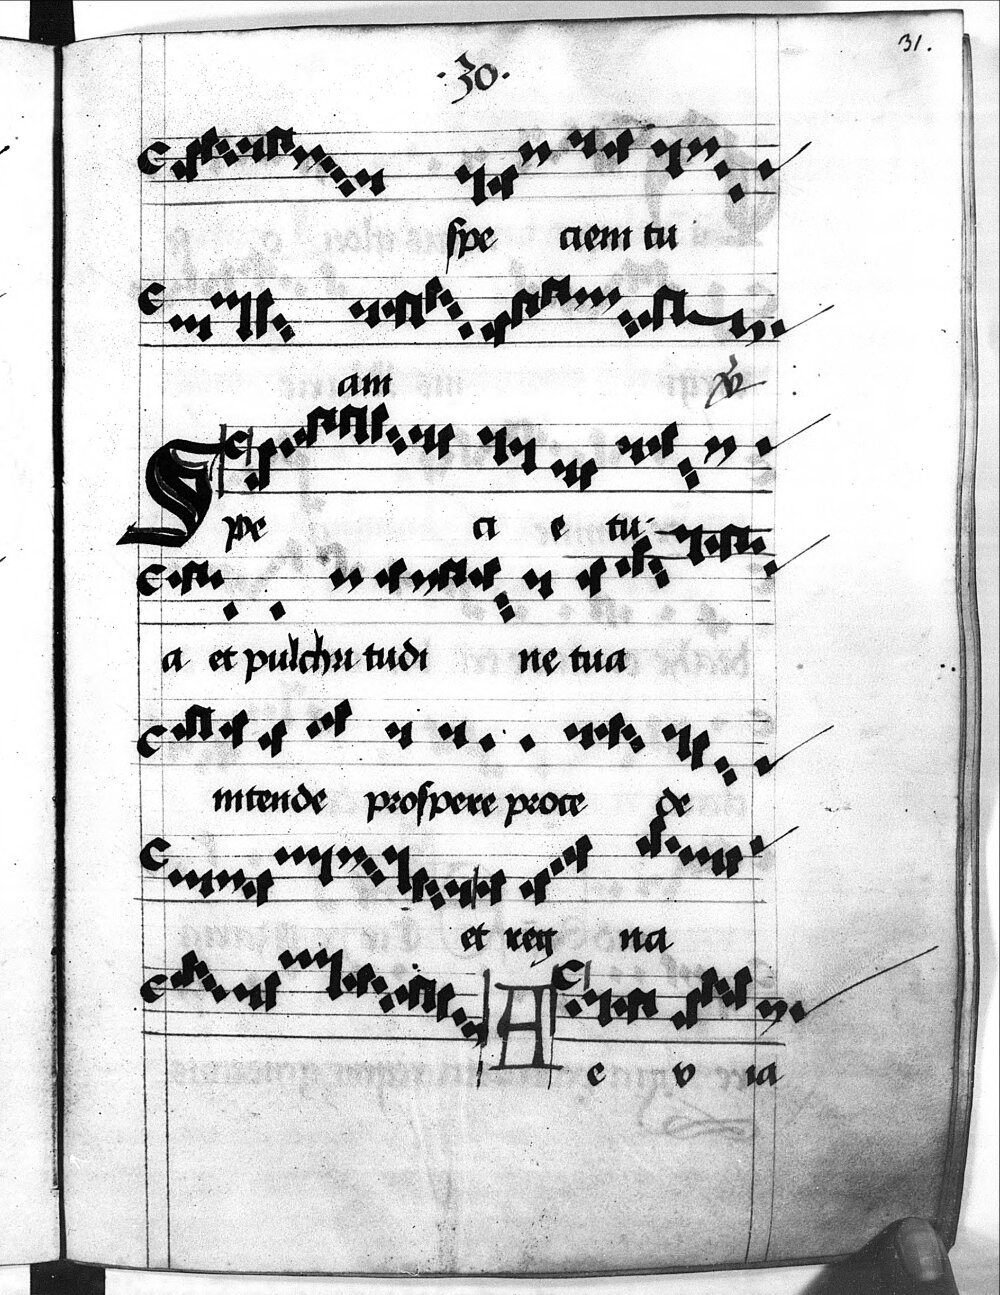 31.
.30.
spe ciem tu
am ℣
Spe ci e tu
a et pulchri tudi ne tua
intende prospere proce de
et reg na
A e v ia